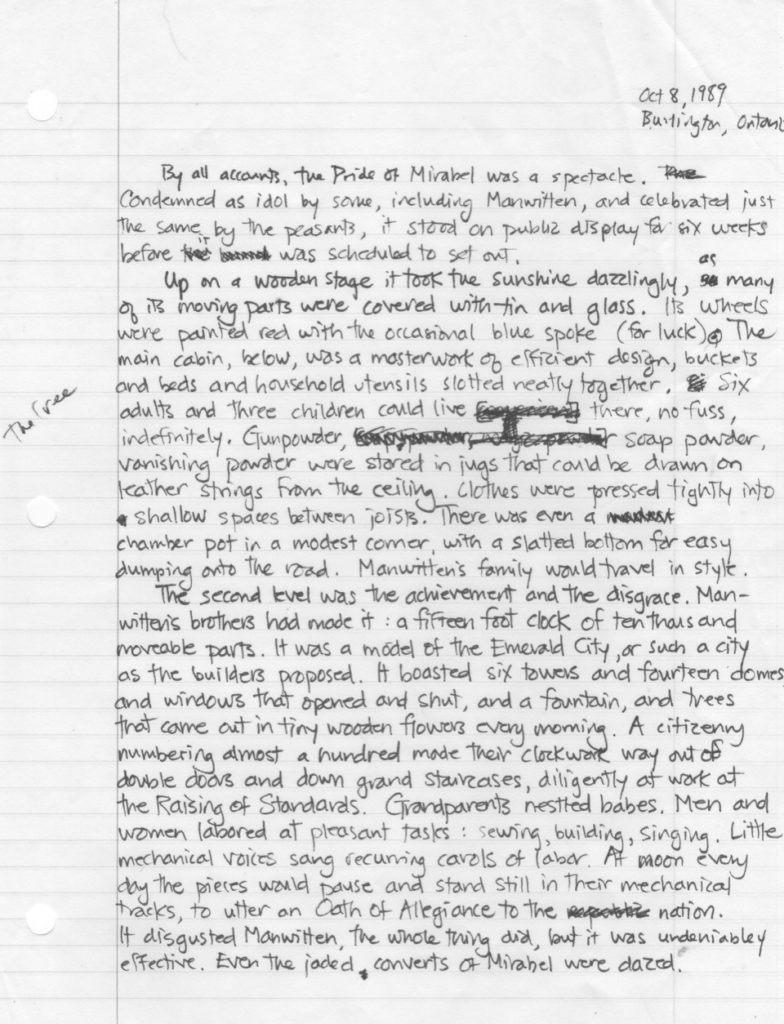 Oct 8, 1989
Burlington, Ontario
By all accounts, the Pride of Mirabel was a spectacle. The
Condemned as idol by some, including Manwitten, and celebrated just
the same by the peasants, it stood on public display for six weeks
before it was scheduled to set out.
Up on a wooden stage it took the sunshine dazzlingly, as many
of its moving parts were covered with tin and glass. Its wheels
were painted red with the occasional blue spoke (for luck). The
main cabin, below, was a masterwork of efficient design, buckets
and beds and household utensils slotted neatly together. Six
The Tree
adults and three children could live there, no fuss,
indefinitely. Gunpowder, soap powder,
vanishing powder were stored in jugs that could be drawn on
leather strings from the ceiling. Clothes were pressed tightly into
shallow spaces between joists. There was even a modest
chamber pot in a modest corner, with a slatted bottom for easy
dumping onto the road. Manwitten's family would travel in style.
The second level was the achievement and the disgrace. Man-
witten's brothers had made it: a fifteen foot clock of ten thousand
moveable parts. It was a model of the Emerald City, or such a city
as the builders proposed. It boasted six towers and fourteen domes
and windows that opened and shut, and a fountain, and trees
that came out in tiny wooden flowers every morning. A citizenry
numbering almost a hundred made their clockwork way out of
double doors and down grand staircases, diligently at work at
the Raising of Standards. Grandparents nestled babes. Men and
women labored at pleasant tasks: sewing, building, singing. Little
mechanical voices sang recurring carols of labor. At noon every
day the pieces would pause and stand still in their mechanical
tracks, to utter an Oath of Allegiance to the nation.
It disgusted Manwitten, the whole thing did, but it was undeniabley
effective. Even the jaded converts of Mirabel were dazed.